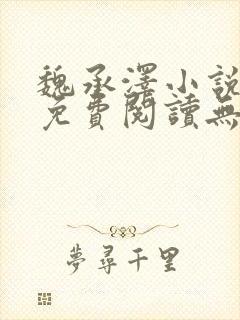 魏承澤小說
免費閱讀無
夢尋千里